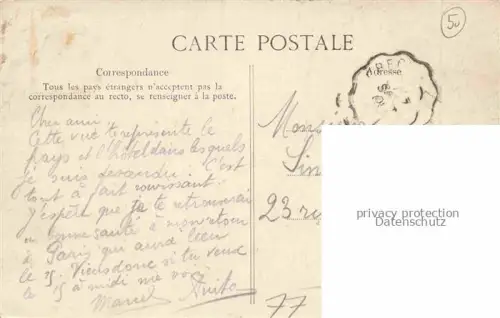 50
CARTE POSTALE
Correspondance
Adresse
Tous les pays étrangers n'acceptent pas la
correspondance au recto, se renseigner à la poste.
Cher ami
Cette vue te représente le
pays et l'hôtel dans lesquels
je suis descendu. C'est
tout à fait ravissant.
J'espère que je te retrouverai
en bonne santé à mon retour
à Paris qui aura lieu
le 15. Viens donc si tu veux
le 15 à midi me voir
Marcel
Monsieur
23 r
77
privacy protection
Datenschutz